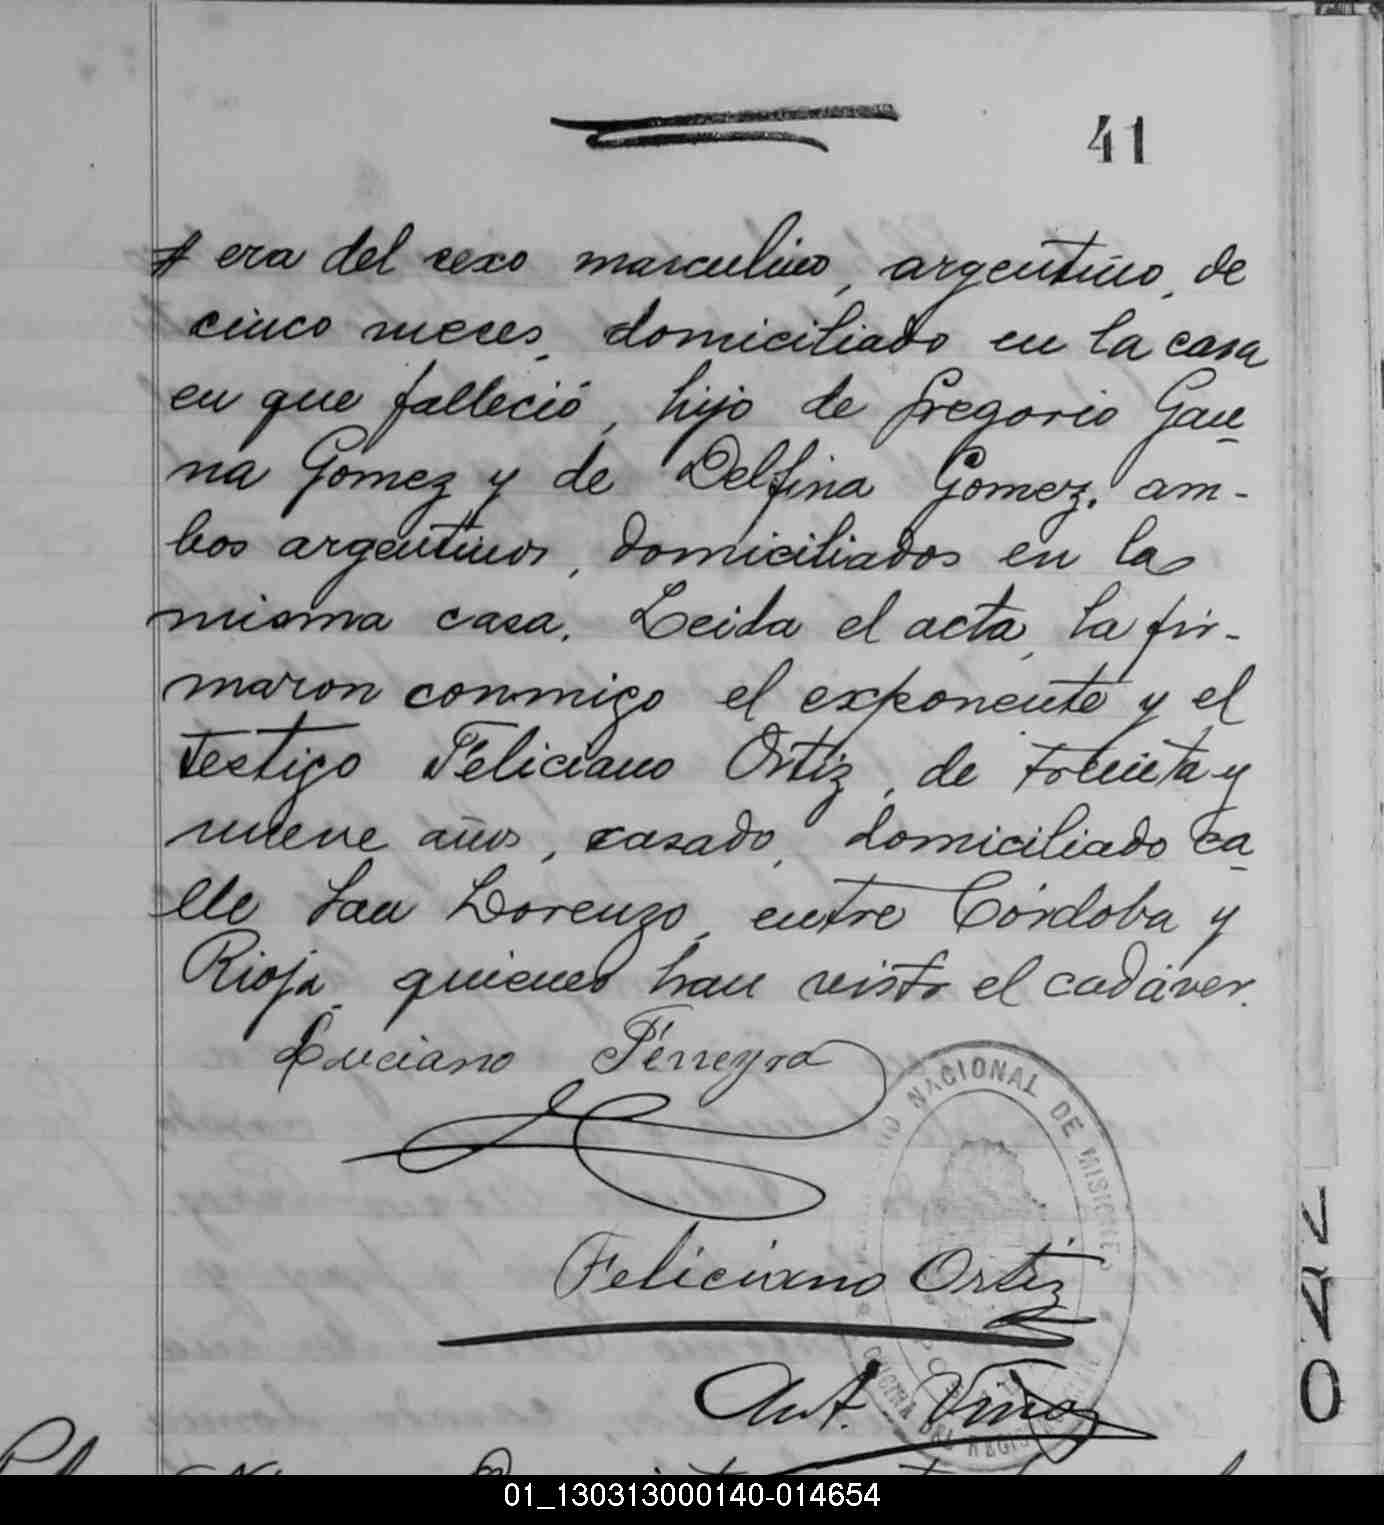 41
era del sexo masculino, argentino, de
cinco meses, domiciliado en la casa
en que falleció, hijo de Gregorio Gau-
na Gomez y de Delfina Gomez, am-
bos argentinos, domiciliados en la
misma casa. Leida el acta, la fir-
maron conmigo el exponente y el
testigo Feliciano Ortiz, de treinta y
nueve años, casado, domiciliado ca-
lle San Lorenzo, entre Córdoba y
Rioja, quienes han visto el cadáver.
Luciano Ferreyra
NACIONAL DE MISIONES
Feliciano Ortiz
Ant.
OFICINA DEL REGISTRO
042
01_130313000140-014654